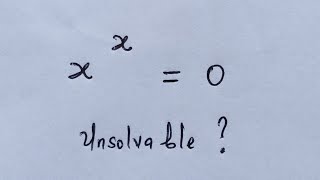 x^x = 0
Unsolvable ?